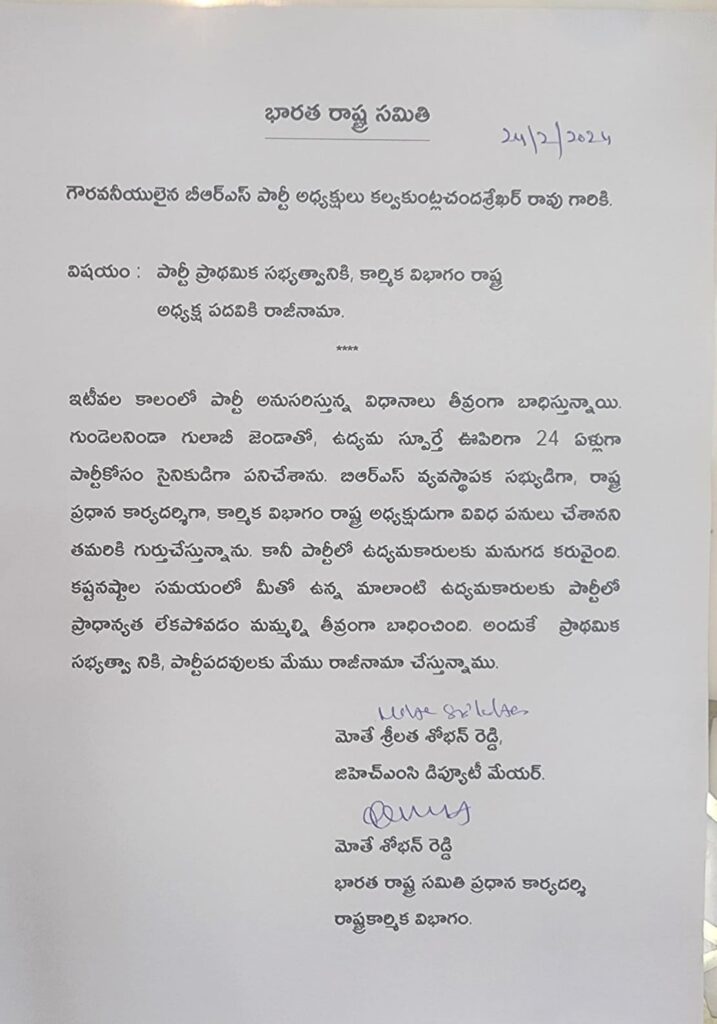 భారత రాష్ట్ర సమితి
24/2/2024
గౌరవనీయులైన బీఆర్ఎస్ పార్టీ అధ్యక్షులు కల్వకుంట్లచందశ్రేఖర్ రావు గారికి.
విషయం : పార్టీ ప్రాథమిక సభ్యత్వానికి, కార్మిక విభాగం రాష్ట్ర
అధ్యక్ష పదవికి రాజీనామా.
****
ఇటీవల కాలంలో పార్టీ అనుసరిస్తున్న విధానాలు తీవ్రంగా బాధిస్తున్నాయి.
గుండెలనిండా గులాబీ జెండాతో, ఉద్యమ స్పూర్తే ఊపిరిగా 24 ఏళ్లుగా
పార్టీకోసం సైనికుడిగా పనిచేశాను. బిఆర్ఎస్ వ్యవస్థాపక సభ్యుడిగా, రాష్ట్ర
ప్రధాన కార్యదర్శిగా, కార్మిక విభాగం రాష్ట్ర అధ్యక్షుడుగా వివిధ పనులు చేశానని
తమరికి గుర్తుచేస్తున్నాను. కానీ పార్టీలో ఉద్యమకారులకు మనుగడ కరువైంది.
కష్టనష్టాల సమయంలో మీతో ఉన్న మాలాంటి ఉద్యమకారులకు పార్టీలో
ప్రాధాన్యత లేకపోవడం మమ్మల్ని తీవ్రంగా బాధించింది. అందుకే ప్రాథమిక
సభ్యత్వా నికి, పార్టీపదవులకు మేము రాజీనామా చేస్తున్నాము.
మోతే శ్రీలత శోభన్ రెడ్డి,
జిహెచ్ఎంసి డిప్యూటీ మేయర్.
మోతే శోభన్ రెడ్డి
భారత రాష్ట్ర సమితి ప్రధాన కార్యదర్శి
రాష్ట్రకార్మిక విభాగం.